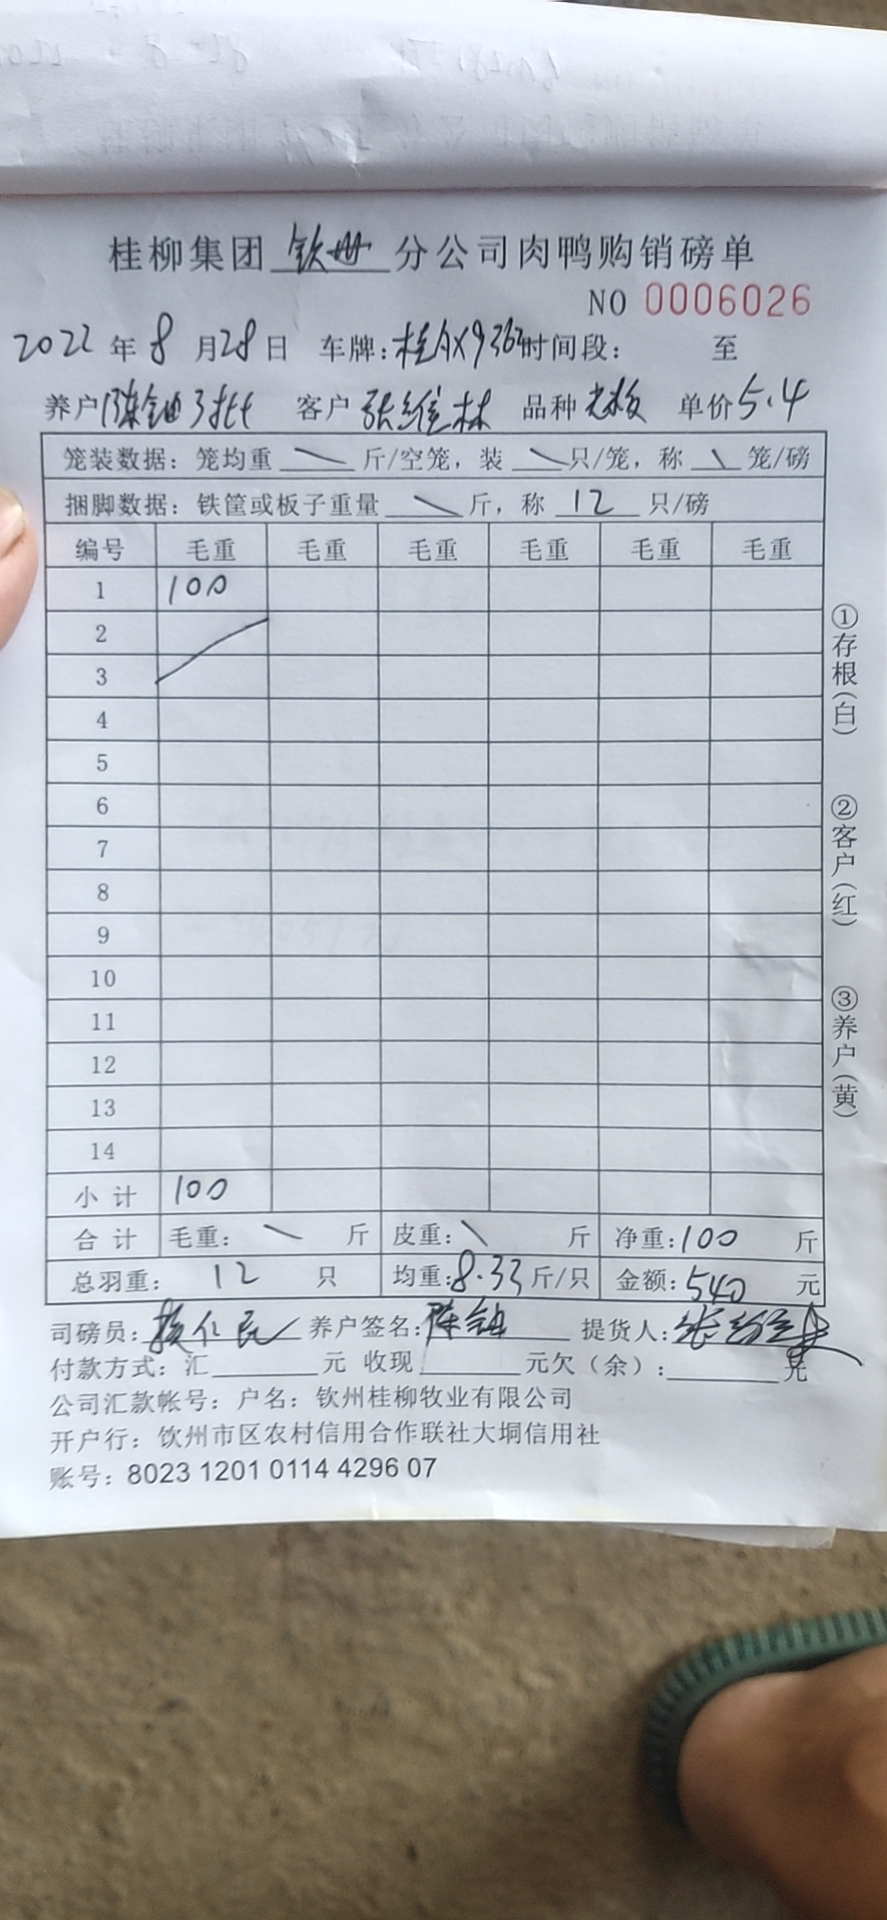 桂柳集团 钦州 分公司肉鸭购销磅单
NO 0006026
2022 年 8 月 28 日 车牌: 时间段: 至
养户 客户 张维林 品种 单价 5.4
笼装数据: 笼均重 \ 斤/空笼, 装 \ 只/笼, 称 \ 笼/磅
捆脚数据: 铁筐或板子重量 \ 斤, 称 12 只/磅
编号 毛重 毛重 毛重 毛重 毛重 毛重
1 100
2
3
4
5
6
7
8
9
10
11
12
13
14
小计 100
合计 毛重: \ 斤 皮重: \ 斤 净重: 100 斤
总羽重: 12 只 均重: 8.33 斤/只 金额: 540 元
司磅员: 养户签名: 提货人:
付款方式: 汇 元 收现 元欠(余): 元
公司汇款帐号: 户名: 钦州桂柳牧业有限公司
开户行: 钦州市区农村信用合作联社大垌信用社
账号: 8023 1201 0114 4296 07
①存根(白)
②客户(红)
③养户(黄)